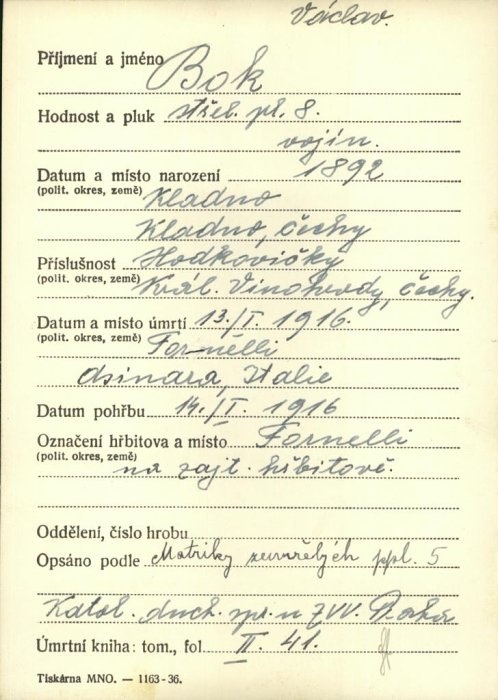 Václav.
Příjmení a jméno Bok
Hodnost a pluk střel. pl. 8.
vojín.
Datum a místo narození 1892
(polit. okres, země) Kladno
Kladno, čechy
Příslušnost Hodkovičky
(polit. okres, země) Král. Vinohrady, čechy.
Datum a místo úmrtí 13./I. 1916.
(polit. okres, země) Fornelli
Asinara, Italie
Datum pohřbu 14./I. 1916
Označení hřbitova a místo Fornelli
(polit. okres, země)
na zajt. hřbitově.
Oddělení, číslo hrobu
Opsáno podle Matriky zemřelých ppl. 5
Katol. duch. spr. u ZVV. Praha
Úmrtní kniha: tom., fol II. 41.
Tiskárna MNO. — 1163-36.